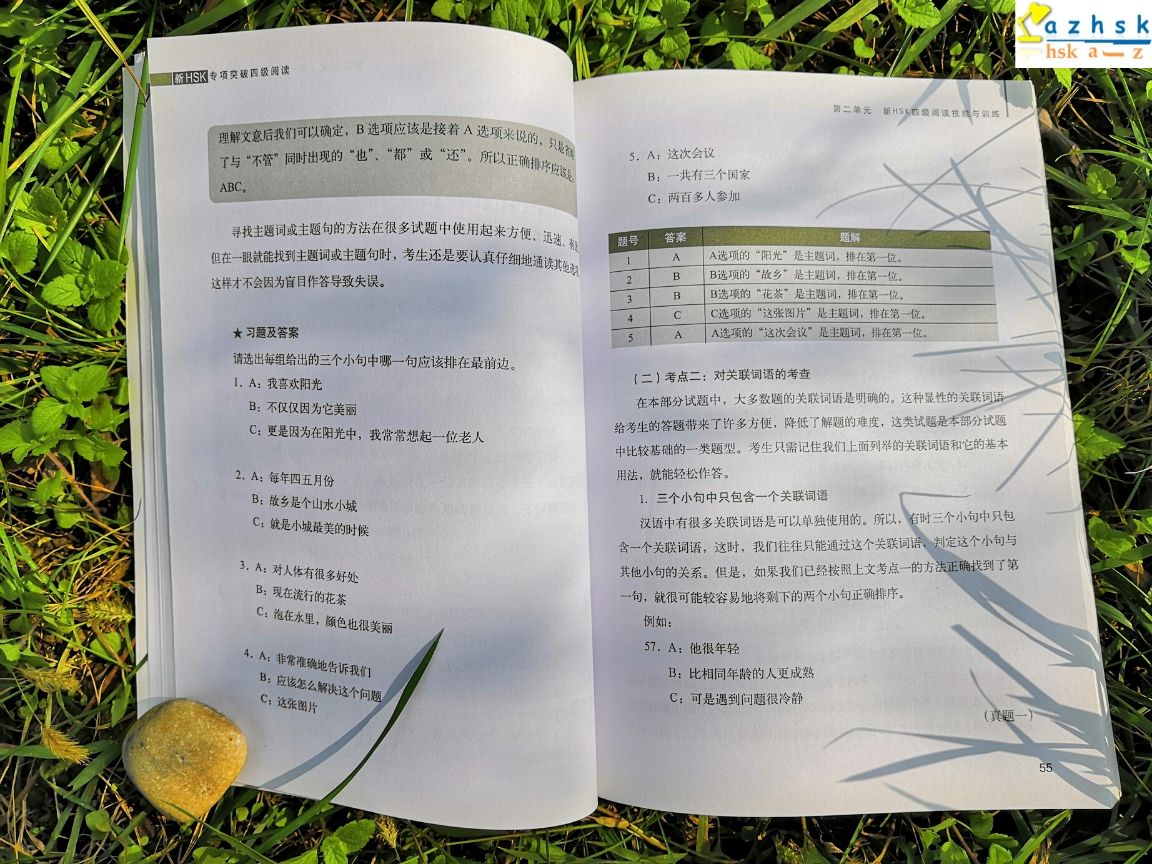 azhsk
hsk a z
新HSK专项突破四级阅读
理解文意后我们可以确定，B 选项应该是接着 A 选项来说的，只是省略
了与“不管”同时出现的“也”、“都”或“还”。所以正确排序应该是：
ABC。
寻找主题词或主题句的方法在很多试题中使用起来方便、迅速、有效
但在一眼就能找到主题词或主题句时，考生还是要认真仔细地通读其他选项
这样才不会因为盲目作答导致失误。
★ 习题及答案
请选出每组给出的三个小句中哪一句应该排在最前边。
1．A：我喜欢阳光
B：不仅仅因为它美丽
C：更是因为在阳光中，我常常想起一位老人
2．A：每年四五月份
B：故乡是个山水小城
C：就是小城最美的时候
3．A：对人体有很多好处
B：现在流行的花茶
C：泡在水里，颜色也很美丽
4．A：非常准确地告诉我们
B：应该怎么解决这个问题
C：这张图片
第二单元 新HSK四级阅读技巧与训练
5．A：这次会议
B：一共有三个国家
C：两百多人参加
题号 答案 题解
1 A A选项的“阳光”是主题词，排在第一位。
2 B B选项的“故乡”是主题词，排在第一位。
3 B B选项的“花茶”是主题词，排在第一位。
4 C C选项的“这张图片”是主题词，排在第一位。
5 A A选项的“这次会议”是主题词，排在第一位。
（二）考点二：对关联词语的考查
在本部分试题中，大多数题的关联词语是明确的。这种显性的关联词语
给考生的答题带来了许多方便，降低了解题的难度，这类试题是本部分试题
中比较基础的一类题型。考生只需记住我们上面列举的关联词语和它的基本
用法，就能轻松作答。
1．三个小句中只包含一个关联词语
汉语中有很多关联词语是可以单独使用的。所以，有时三个小句中只包
含一个关联词语，这时，我们往往只能通过这个关联词语，判定这个小句与
其他小句的关系。但是，如果我们已经按照上文考点一的方法正确找到了第
一句，就很可能较容易地将剩下的两个小句正确排序。
例如：
57．A：他很年轻
B：比相同年龄的人更成熟
C：可是遇到问题很冷静
（真题一）
55